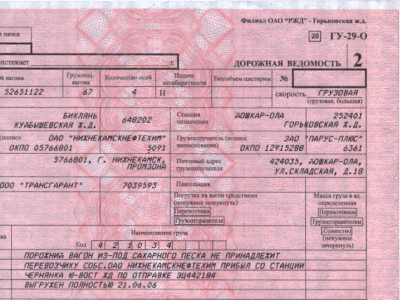 Филиал ОАО "РЖД" - Горьковская ж.д.
20 ГУ-29-О
ДОРОЖНАЯ ВЕДОМОСТЬ 2
истекает г.
вагона Грузопод. вагона Количество осей Индекс негабаритности Тип/объем цистерны №
52651122 67 4 Н скорость ГРУЗОВАЯ
(грузовая, большая)
БИКЛЯНЬ 648202 Станция назначения ЙОШКАР-ОЛА 252401
КУЙБЫШЕВСКАЯ Ж.Д. ГОРЬКОВСКАЯ Ж.Д.
(полное ОАО "НИЖНЕКАМСКНЕФТЕХИМ" Грузополучатель (полное наименование) ЗАО "ПАРУС-ПЛЮС"
ОКПО 05766801 5091 ОКПО 12915288 6361
5766801, Г. НИЖНЕКАМСК, Почтовый адрес грузополучателя 424035, ЙОШКАР-ОЛА,
ПРОМЗОНА УЛ.СКЛАДСКАЯ, Д.18
ООО "ТРАНСГАРАНТ" 7039593 Плательщик
Погрузка на вагон средствами (ненужное зачеркнуть) Масса груза в кг. определенная
Перевозчика Перевозчиком
Грузоотправителя Грузоотправителем
Совместно
(ненужное зачеркнуть)
Наименование груза
Код 4 2 1 0 3 4
ПОРОЖНИЙ ВАГОН ИЗ-ПОД САХАРНОГО ПЕСКА НЕ ПРИНАДЛЕЖИТ
ПЕРЕВОЗЧИКУ СОБС.ОАО НИЖНЕКАМСКНЕФТЕХИМ ПРИБЫЛ СО СТАНЦИИ
ЧЕРНЯНКА Ю-ВОСТ ЖД ПО ОТПРАВКЕ ЭЦ442184
ВЫГРУЖЕН ПОЛНОСТЬЮ 21.06.06